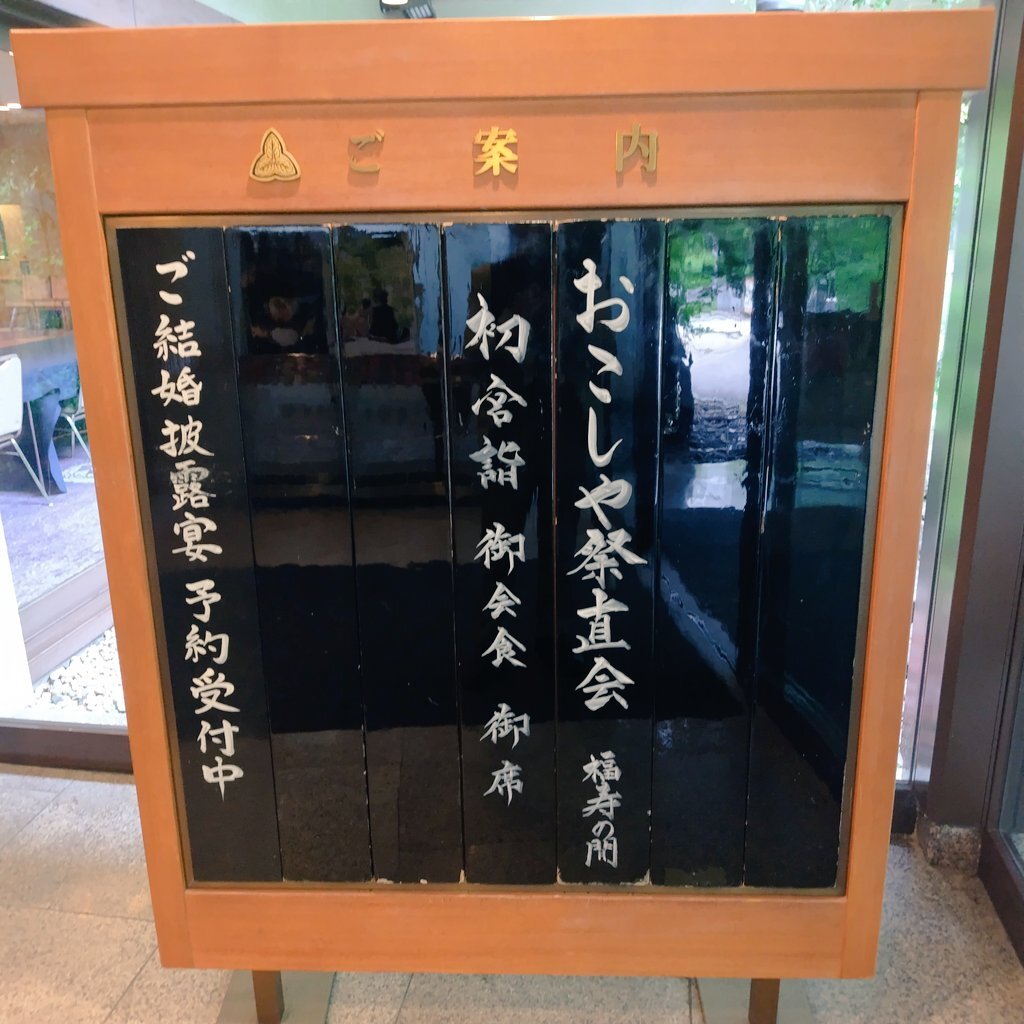 ご案内
おこしや祭直会 福寿の間
初宮詣 御会食 御席
ご結婚披露宴 予約受付中